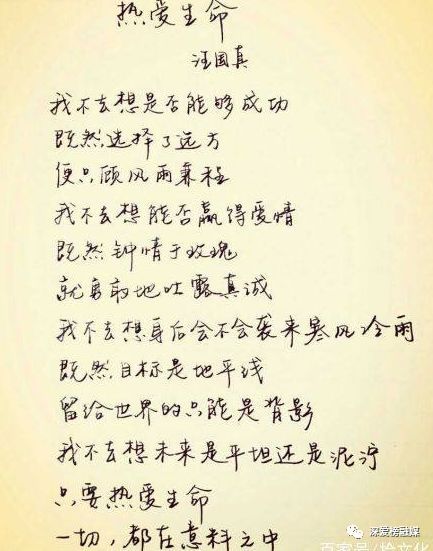 热爱生命
汪国真
我不去想是否能够成功
既然选择了远方
便只顾风雨兼程
我不去想能否赢得爱情
既然钟情于玫瑰
就勇敢地吐露真诚
我不去想身后会不会袭来寒风冷雨
既然目标是地平线
留给世界的只能是背影
我不去想未来是平坦还是泥泞
只要热爱生命
一切，都在意料之中
深爱榜融媒